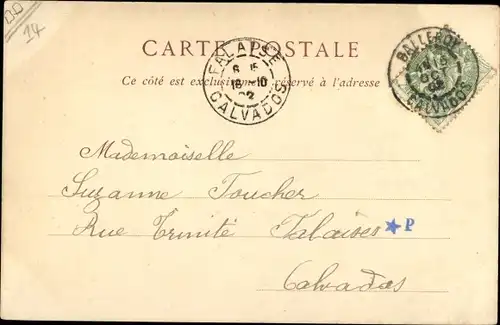 DD
14
CARTE POSTALE
Ce côté est exclusivement réservé à l'adresse
FALAISE
6 15
16 10
02
CALVADOS
BALLEROY
CALVADOS
Mademoiselle
Suzanne Toucher
Rue Trinité Falaises
P
Calvados